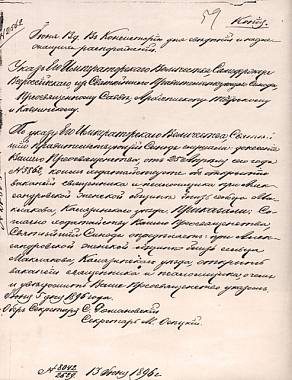 59 Копія.
Іюня 13 д. Въ Консисторію для свѣдѣнія и надле-
жащаго распоряженія.
Указъ Его Императорскаго Величества Самодержца
Всероссійскаго изъ Святѣйшаго Правительствующаго Сѵнода
Преосвященному Саввѣ, Архіепископу Тверскому
и Кашинскому.
По указу Его Императорскаго Величества Святѣй-
шій Правительствующій Сѵнодъ слушали: донесеніе
Вашего Преосвященства, отъ 25 Апрѣля сего года
коимъ ходатайствуете объ открытіи
вакансій священника и псаломщика при Але-
ксандровской женской общинѣ близъ сельца
Маклакова, Калязинскаго уѣзда. Приказали: Со-
гласно ходатайству Вашего Преосвященства
Святѣйшій Сѵнодъ опредѣляетъ: при Але-
ксандровской женской общинѣ близъ сельца
Маклакова, Калязинскаго уѣзда, открыть
вакансіи священника и псаломщика, о чемъ
и увѣдомить Ваше Преосвященство указомъ.
Іюня 5 дня 1896 года.
Оберъ Секретарь С.
Секретарь М.
№ 3042
13 Іюня 1896 г.